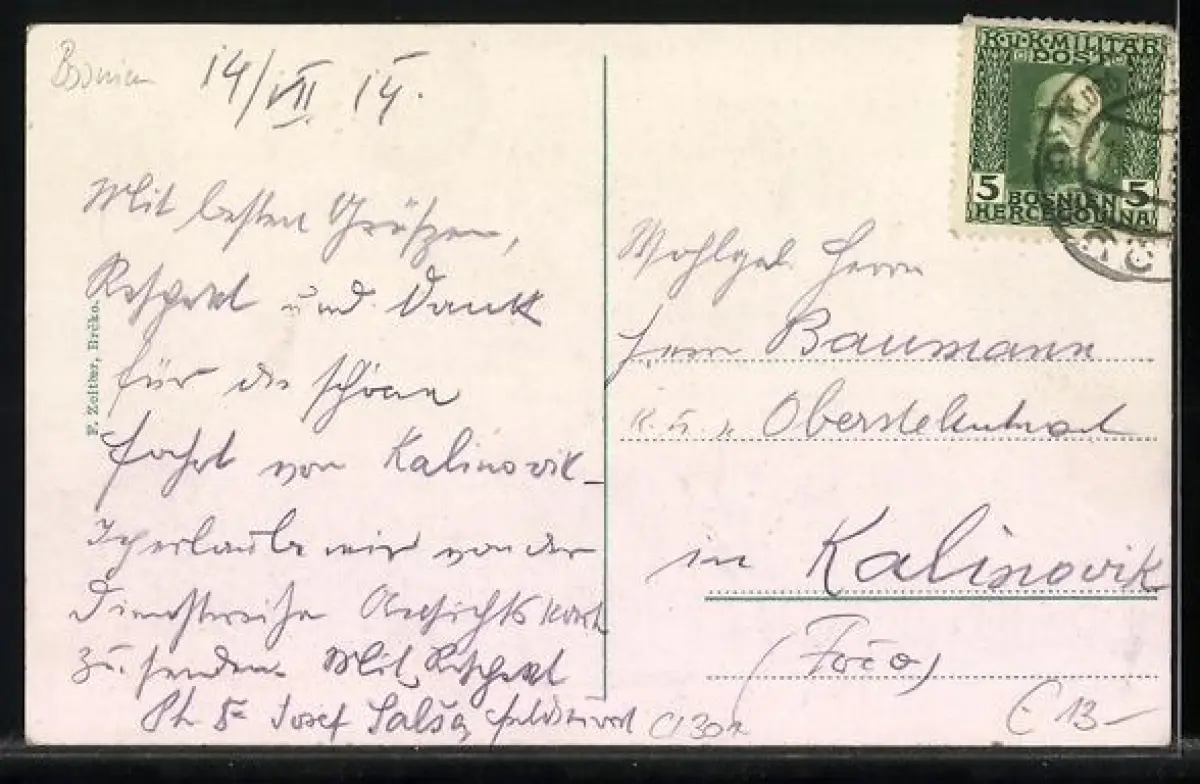 Bosnien
14/VII 14.
Mit besten Grüßen,
Respekt und Dank
für die schöne
Fahrt von Kalinovik
Ich erlaube mir von der
Dienstreise Ansichtskart
zu senden. Mit Respekt
Josef
F. Zeitler, Brčko.
K.U.K. MILITÄR
POST
5 5
BOSNIEN
HERCEGOVINA
Wohlgeb. Herrn
Herrn Baumann
K. u. k. Oberstleutnant
in Kalinovik
(Foča)
€ 13-